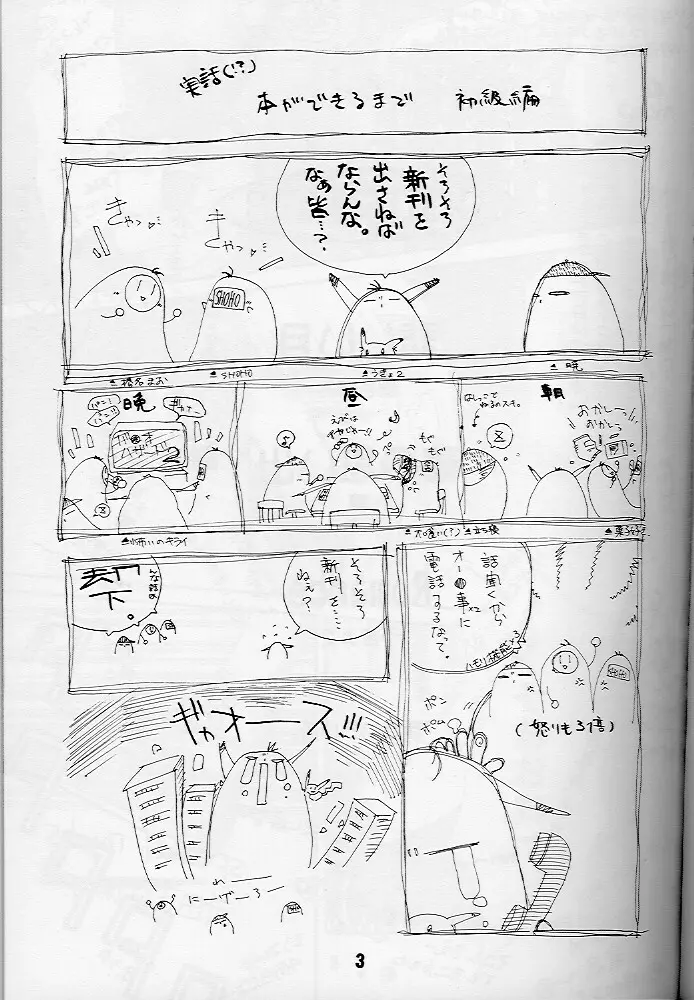 実話(!?)
本ができるまで 初級編
そろそろ
新刊を
出さねば
ならんな。
なぁ皆…?
きゃっ
きゃっ
SHOHO
SHOHO
うきょ2
暁
朝
おかしーっ
おかしっ
昼
もぐ
もぐ
晩
そろそろ
新刊を……
ねぇ?
却下
話聞くから
オー●事×2に
電話するなって。
ハモリ機能×3
SHOHO
(怒りも3倍)
ポン
ポム
ギャオース!!!
わー
にーげーろー
3